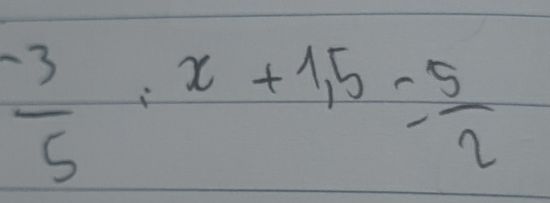 -3/5 . x + 1,5 = 5/2